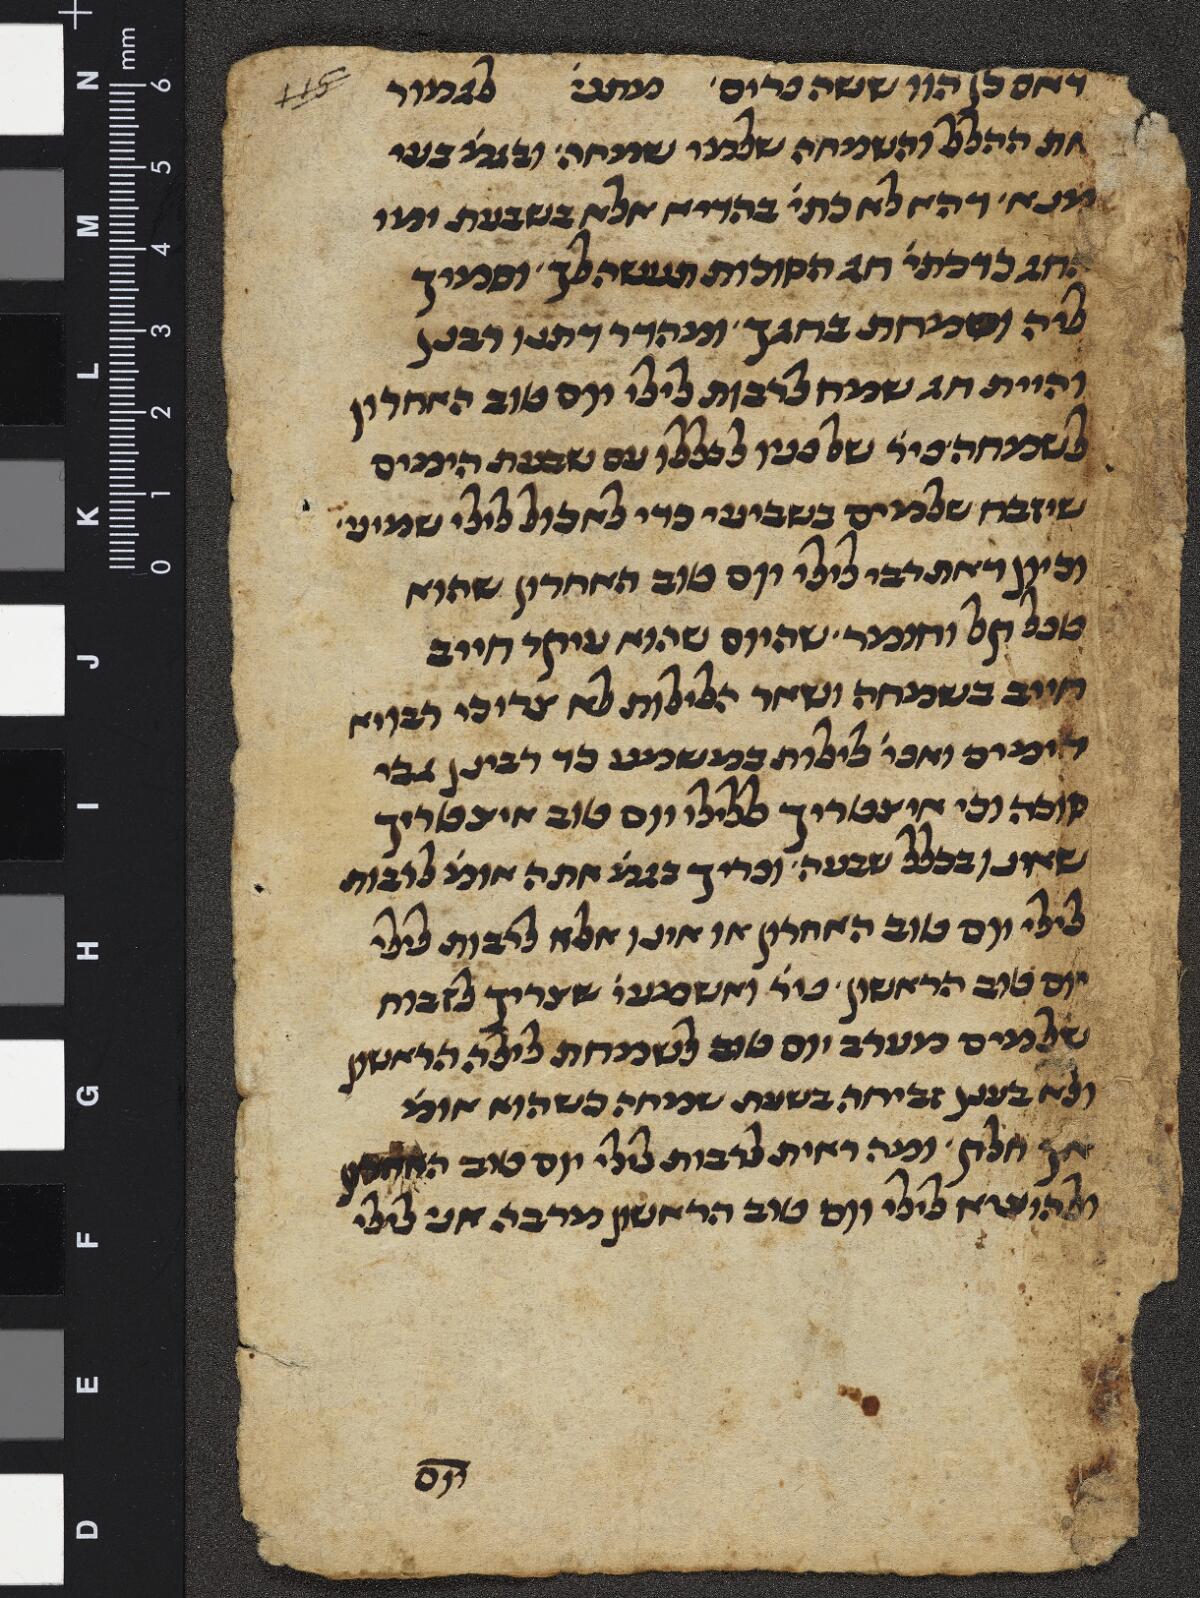 115
דאם כן הוו ששה פרים׳ מתני׳ לגמור
את ההלל והשמחה שלמי שמחה׳ ובגמ׳ בעי
מנא׳ דהא לא כתי׳ בהדיא אלא בשבעת ימי
החג כדכתי׳ חג הסוכות תעשה לך׳ וסמיך
ליה ושמחת בחגך׳ ומהדר דתנו רבנן
והיית אך שמח לרבות לילי יום טוב האחרון
לשמחה׳ פיר׳ שלפנינו לכללו עם שבעת הימים
שיזבח שלמים בשביעי כדי לאכול לילי שמיני׳
וכיון דאתרבי לילי יום טוב האחרון שהוא
טפל קל וחומר׳ שהיום שהוא עיקר חייב
חייב בשמחה ושאר הלילות לא צריכי רבויא
דימים ואפי׳ לילות במשמע כד רבינן גבי
סוכה וכי איצטריך ללילי יום טוב איצטריך
שאינן בכלל שבעה׳ ופריך בגמ׳ אתה אומ׳ לרבות
לילי יום טוב האחרון או אינו אלא לרבות לילי
יום טוב הראשון׳ פיר׳ ואשמעי׳ שצריך לזבוח
שלמים מערב יום טוב לשמחת לילה הראשון
ולא בעינן זביחה בשעת שמחה כשהוא אומ׳
אך חלק׳ ומה ראית לרבות לילי יום טוב האחרון
ולהוציא לילי יום טוב הראשון מרבה אני לילי
יום